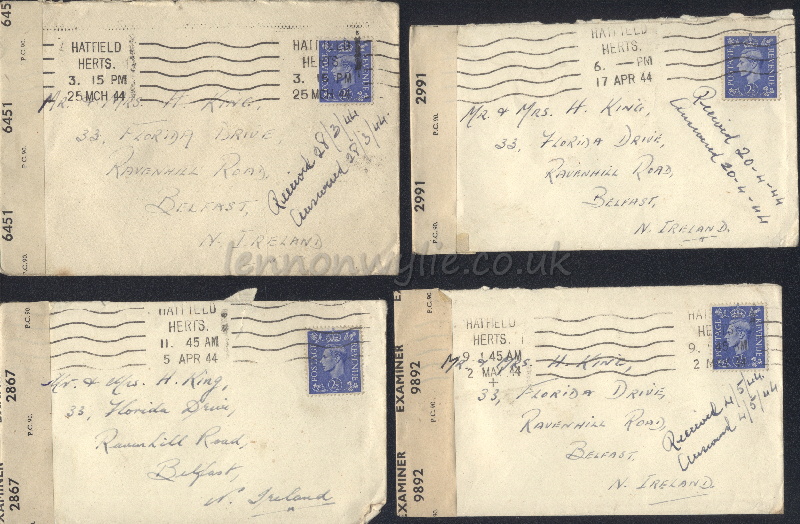 6451
P.C. 90.
6451
P.C. 90.
6451
HATFIELD
HERTS.
3. 15 PM
25 MCH 44
HATFIELD
3. 15 PM
25 MCH
POSTAGE
REVENUE
Mr. & Mrs H. King,
33, Florida Drive
Ravenhill Road,
Belfast,
N. Ireland
Received 28/3/44.
Answered 28/3/44.
2991
P.C. 90.
2991
P.C. 90.
HATFIELD
HERTS.
6. — PM
17 APR 44
POSTAGE
REVENUE
Mr. & Mrs. H. King,
33, Florida Drive,
Ravenhill Road,
Belfast,
N. Ireland.
Received 20-4-44
Answered 20-4-44
lennonwylie.co.uk
P.C. 90.
2867
P.C. 90.
2867
HATFIELD
HERTS.
11. 45 AM
5 APR 44
POSTAGE
REVENUE
Mr. & Mrs. H. King,
33, Florida Drive,
Ravenhill Road,
Belfast,
N. Ireland
EXAMINER
P.C. 90.
EXAMINER
9892
P.C. 90.
EXAMINER
9892
HATFIELD
HERTS.
9. 45 AM
2 MAY 44
POSTAGE
REVENUE
Mr. & Mrs. H. King,
33, Florida Drive,
Ravenhill Road,
Belfast,
N. Ireland.
Received 4/5/44
Answered 4/5/44